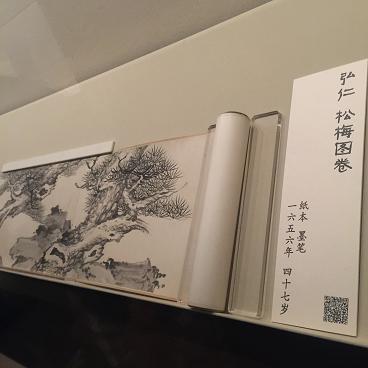 弘仁 松梅图卷
纸本 墨笔
一六五六年 四十七岁